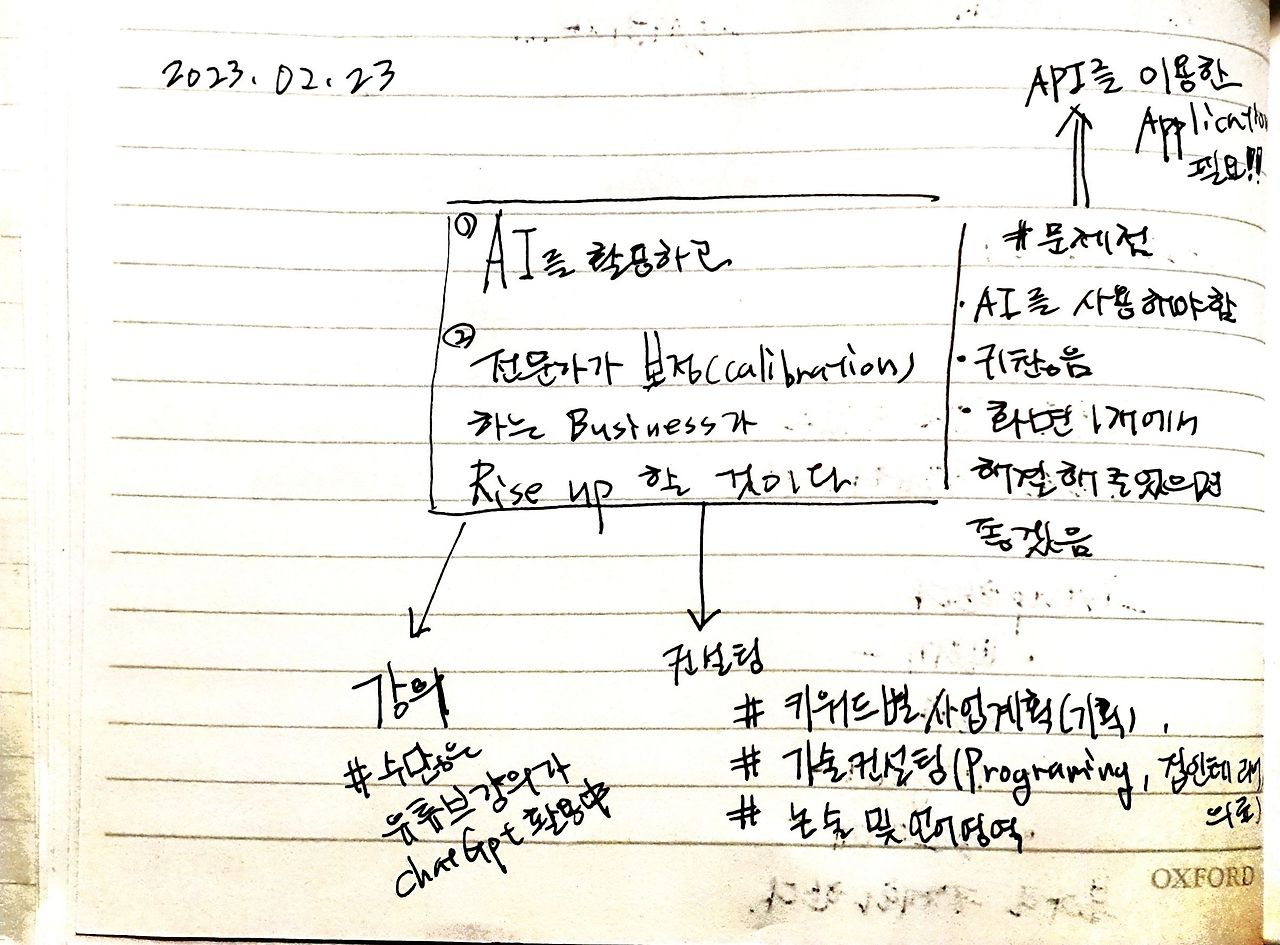 2023. 02. 23
API를 이용한
Application
필요!!
① AI를 활용하고
② 전문가가 보정(calibration)
하는 Business가
Rise up 할 것이다
# 문제점
· AI를 사용해야함
· 귀찮음
· 화면 1개에서
해결해 주었으면
좋겠음
강의
# 수많은
유튜브 강의가
chatGpt 활용中
컨설팅
# 키워드별 사업계획(기획)
# 기술컨설팅(Programing, 집인테리어,
의료)
# 논술 및 언어영역
OXFORD